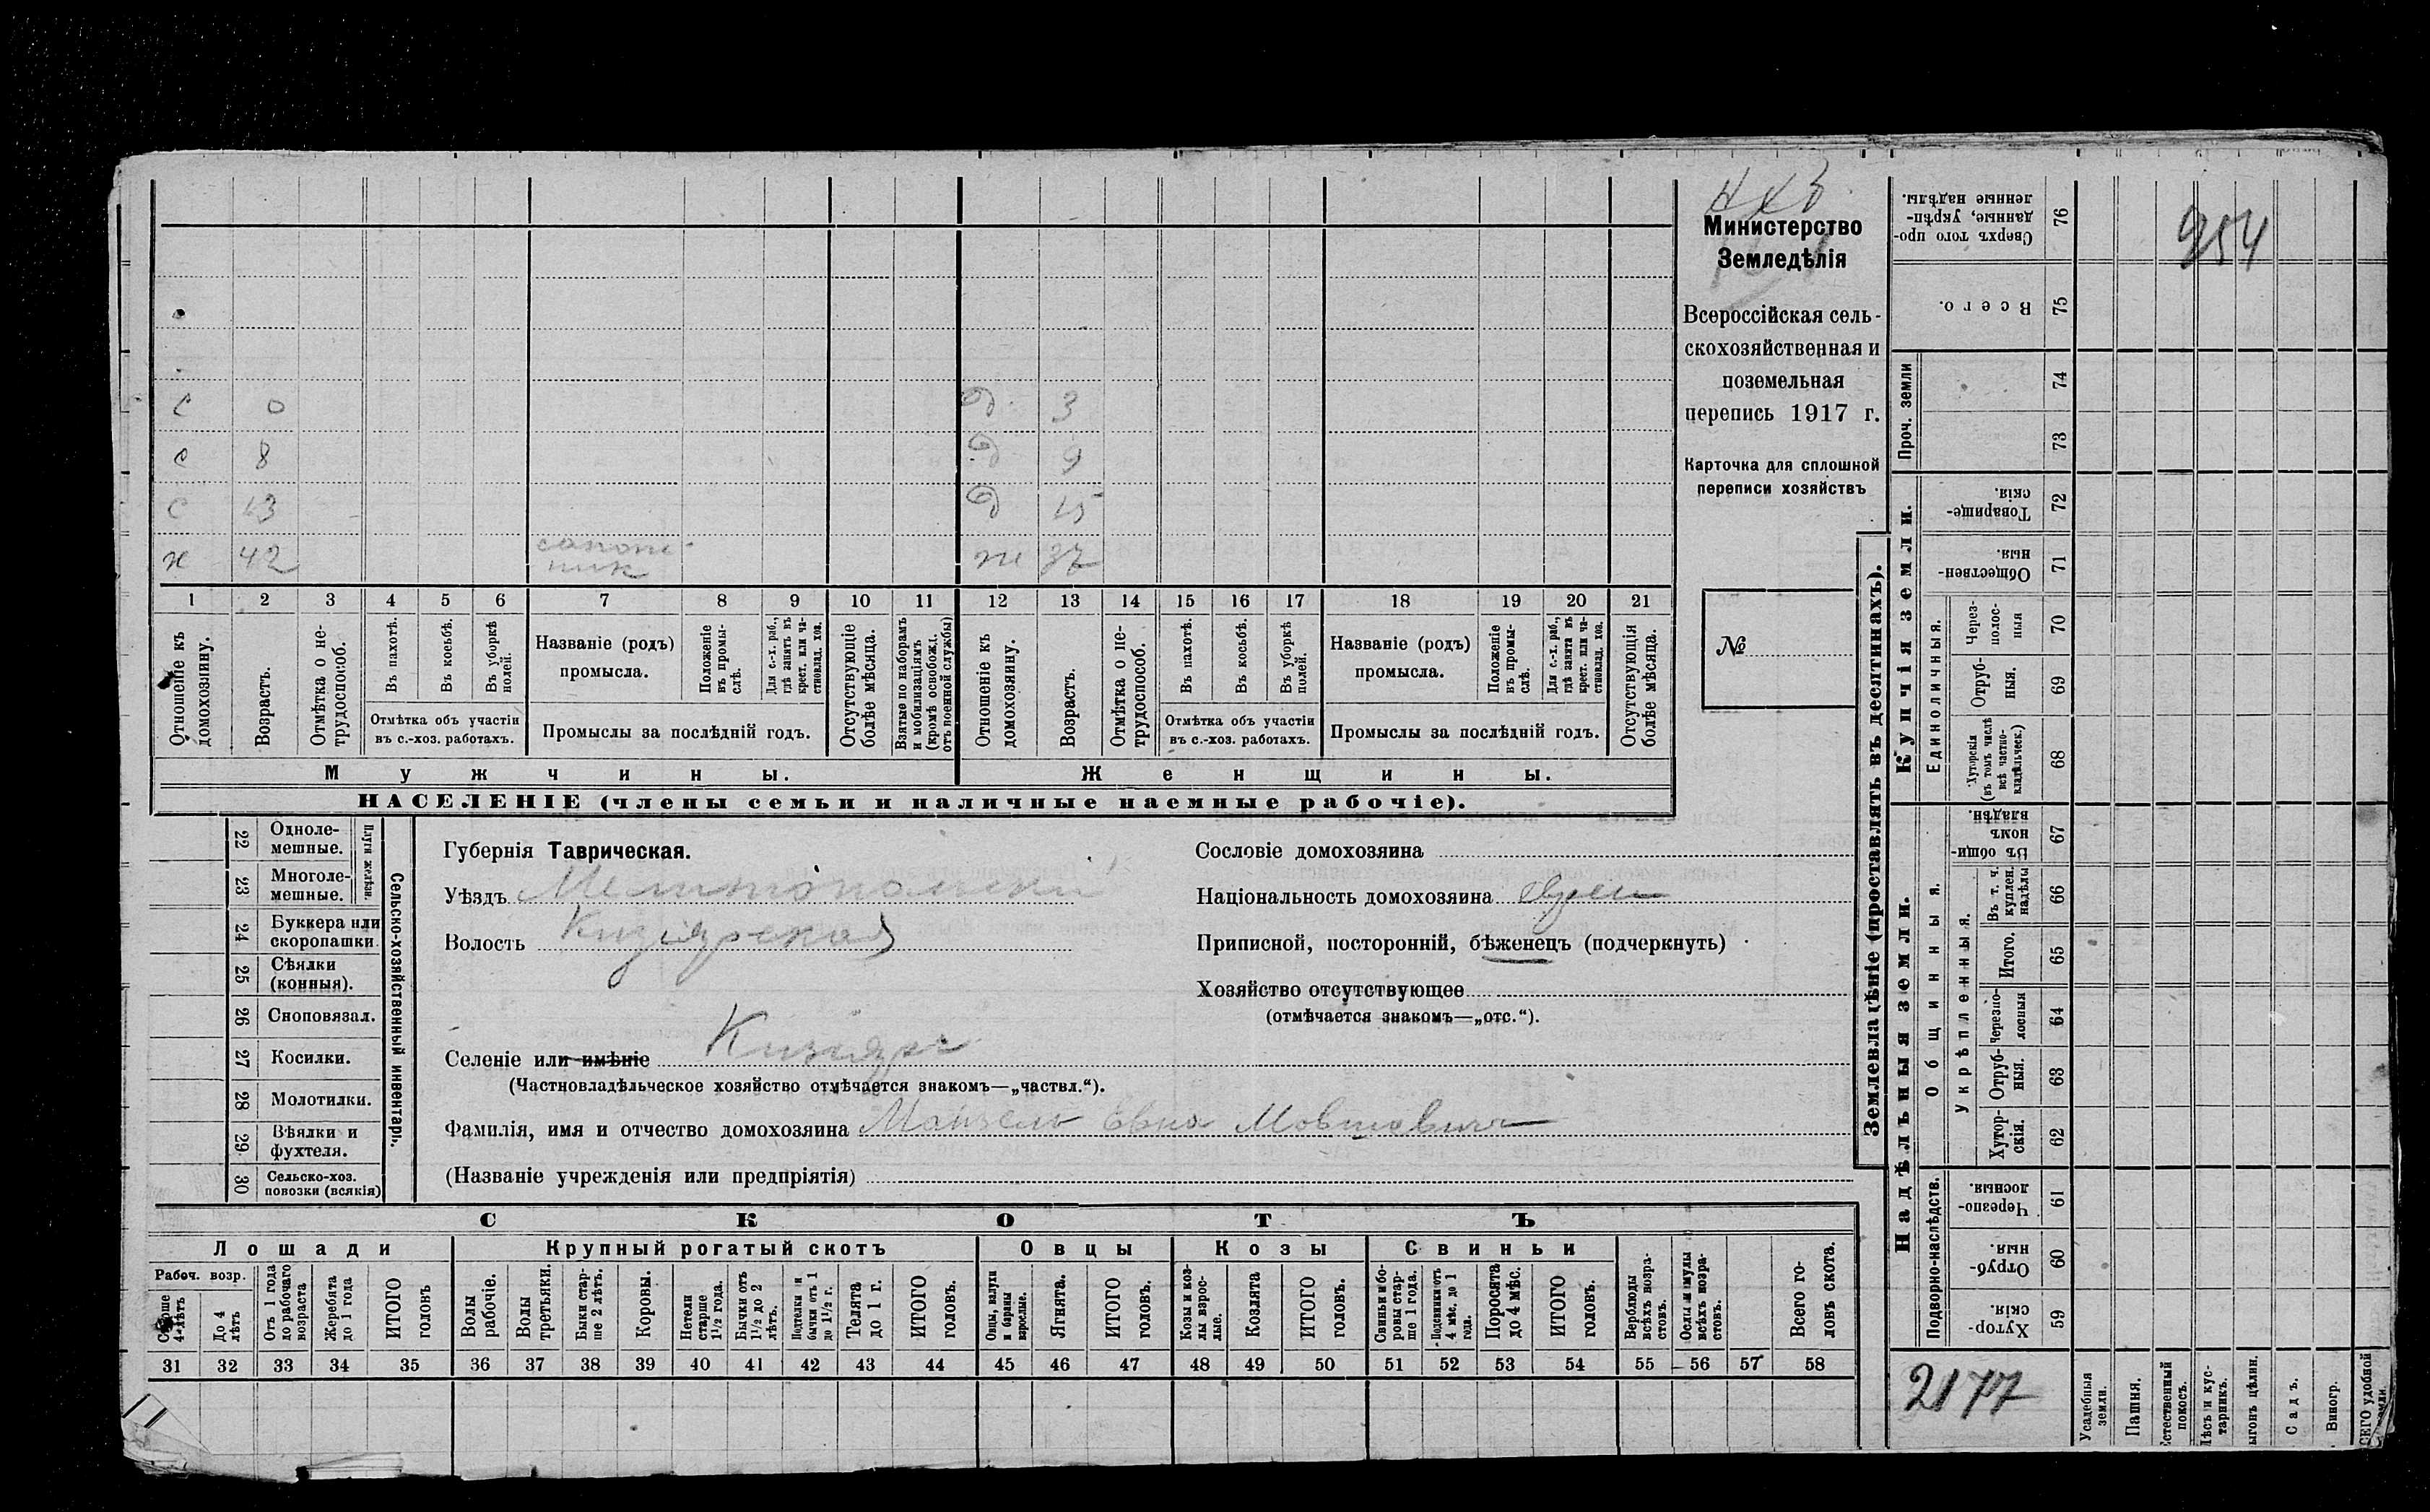 Министерство
Земледѣлія
Всероссійская сель-
скохозяйственная и
поземельная
перепись 1917 г.
Карточка для сплошной
переписи хозяйствъ
№
954
с 0 д. 3
с 8 д 9
с 13 д 15
х 42 сапож-
ник ж 37
1 2 3 4 5 6 7 8 9 10 11 12 13 14 15 16 17 18 19 20 21
Отношеніе къ домохозяину.
Возрастъ.
Отмѣтка о не-трудоспособ.
Въ пахотѣ.
Въ косьбѣ.
Въ уборкѣ полей.
Отмѣтка объ участіи
въ с.-хоз. работахъ.
Названіе (родъ)
промысла.
Положеніе въ промы-слѣ.
Для с.-х. раб., гдѣ занятъ въ крест. или ча-стновлад. хоз.
Промыслы за послѣдній годъ.
Отсутствующіе болѣе мѣсяца.
Взятые по наборамъ и мобилизаціямъ (кромѣ освобожд. отъ военной службы)
Отношеніе къ домохозяину.
Возрастъ.
Отмѣтка о не-трудоспособ.
Въ пахотѣ.
Въ косьбѣ.
Въ уборкѣ полей.
Отмѣтка объ участіи
въ с.-хоз. работахъ.
Названіе (родъ)
промысла.
Положеніе въ промы-слѣ.
Для с.-х. раб., гдѣ занята въ крест. или ча-стновлад. хоз.
Промыслы за послѣдній годъ.
Отсутствующія болѣе мѣсяца.
Мужчины. Женщины.
НАСЕЛЕНІЕ (члены семьи и наличные наемные рабочіе).
Сельско-хозяйственный инвентарь.
Плуги желѣзн.
22 Одноле-мешные.
23 Многоле-мешные.
24 Буккера или скоропашки.
25 Сѣялки (конныя).
26 Сноповязал.
27 Косилки.
28 Молотилки.
29 Вѣялки и фухтеля.
30 Сельско-хоз. повозки (всякія)
Губернія Таврическая.
Уѣздъ Мелитопольскій
Волость Кизіярская
Селеніе или имѣніе Кизіяръ
(Частновладѣльческое хозяйство отмѣчается знакомъ—„частвл.“).
Фамилія, имя и отчество домохозяина Мовшовичъ
(Названіе учрежденія или предпріятія)
Сословіе домохозяина
Національность домохозяина еврей
Приписной, посторонній, бѣженецъ (подчеркнуть)
Хозяйство отсутствующее
(отмѣчается знакомъ—„отс.“).
СКОТЪ
Лошади Крупный рогатый скотъ Овцы Козы Свиньи
Рабоч. возр.
Старше 4 лѣтъ
До 4 лѣтъ
Отъ 1 года до рабочаго возраста
Жеребята до 1 года
ИТОГО головъ
Волы рабочіе.
Волы третьяки.
Быки стар-ше 2 лѣтъ.
Коровы.
Нетели старше 1½ года.
Бычки отъ 1½ до 2 лѣтъ.
Подтелки и бычки отъ 1 до 1½ г.
Телята до 1 г.
ИТОГО головъ.
Овцы, валухи и бараны взрослые.
Ягнята.
ИТОГО головъ.
Козы и коз-лы взрос-лые.
Козлята
ИТОГО головъ.
Свиньи и бо-ровы стар-ше 1 года.
Подсвинки отъ 4 мѣс. до 1 года.
Поросята до 4 мѣс.
ИТОГО головъ.
Верблюды всѣхъ возра-стовъ.
Ослы и мулы всѣхъ возра-стовъ.
Всего го-ловъ скота.
31 32 33 34 35 36 37 38 39 40 41 42 43 44 45 46 47 48 49 50 51 52 53 54 55 56 57 58
Землевладѣніе (проставлять въ десятинахъ).
Купчія земли.
Проч. земли
Единоличныя.
Сверхъ того про-данные, укрѣп-ленные надѣлы. 76
Всего. 75
74
73
Товарище-скія. 72
Обществен-ныя. 71
Через-полос-ныя 70
Отруб-ныя. 69
Хуторскія (въ томъ числѣ всѣ частно-владѣльческ.) 68
Надѣльныя земли.
Общинныя.
Укрѣпленныя.
Въ общи-номъ владѣн. 67
Въ т. ч. куплен. надѣлы 66
Итого. 65
Черезпо-лосныя 64
Отруб-ныя. 63
Хутор-скія. 62
Подворно-наслѣдств.
Черезпо-лосныя. 61
Отруб-ныя. 60
Хутор-скія. 59
2177
Усадебныя земли.
Пашня.
Естественный покосъ.
Лѣсъ и кус-тарникъ.
Выгонъ цѣлин.
Садъ.
Виногр.
ВСЕГО удобной земли.